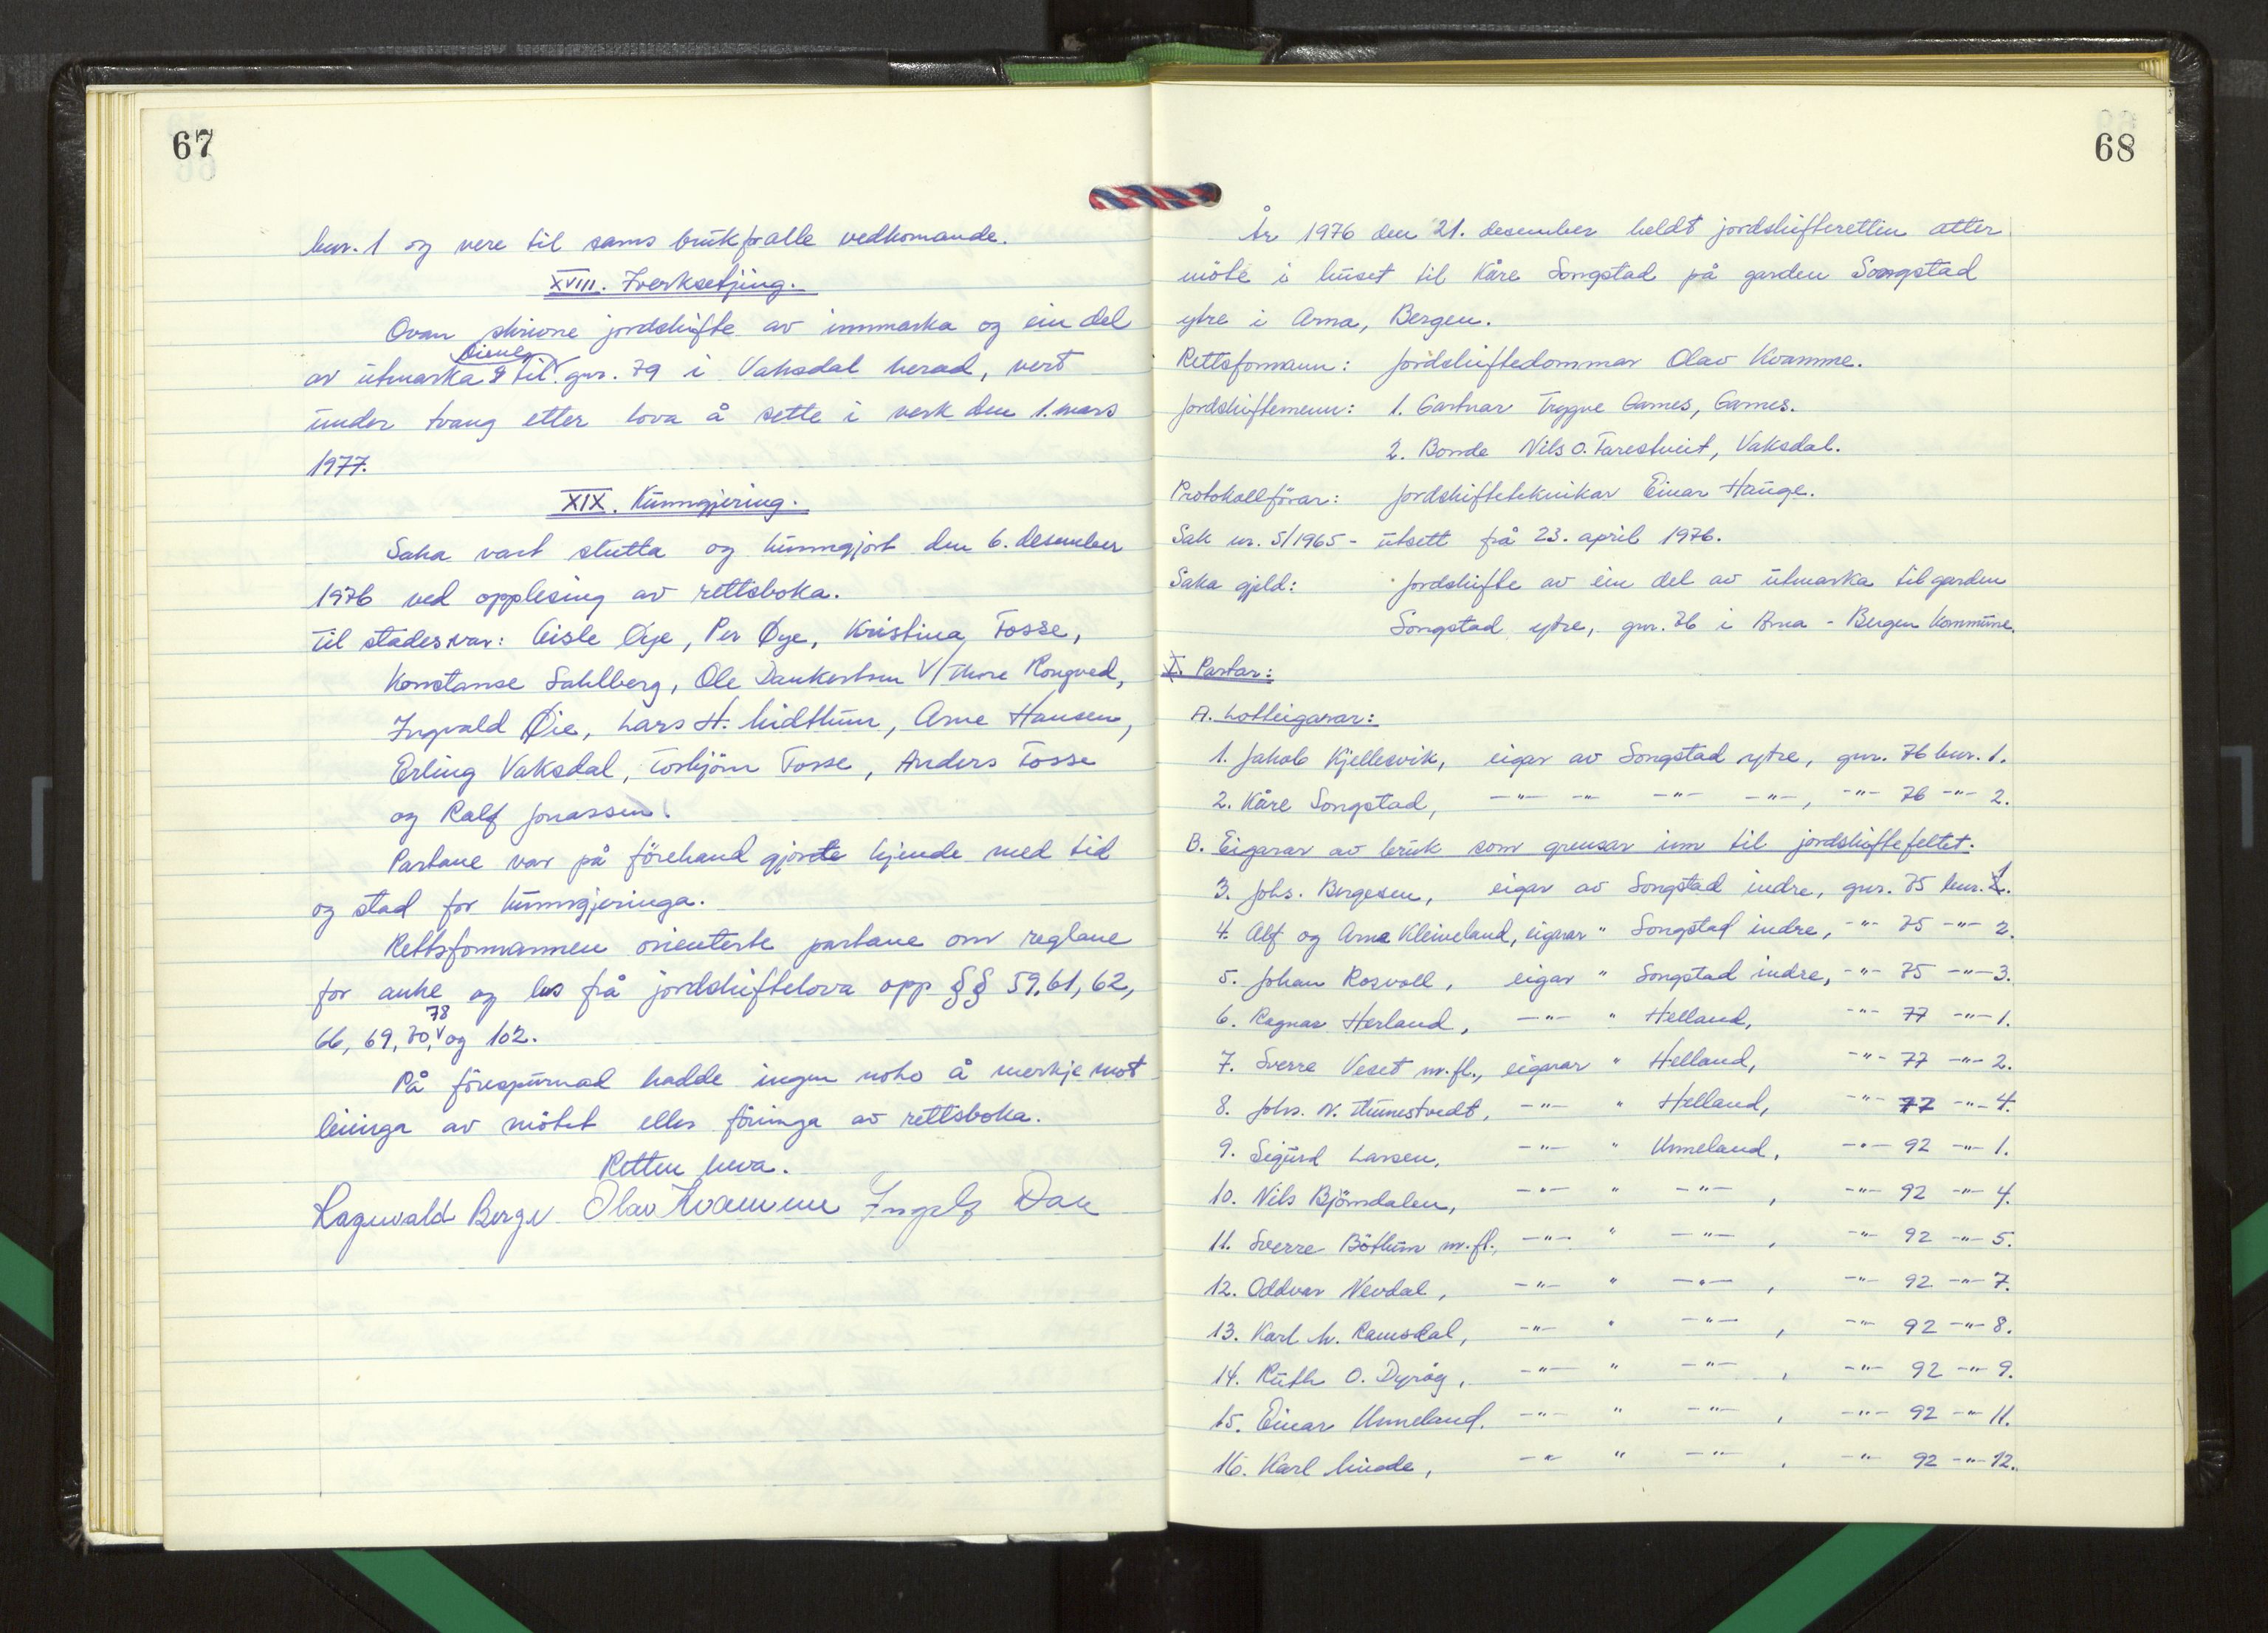 67
bnr. 1 og vere til sams bruk for alle vedkomande.
XVIII. Iverksetjing.
Ovan skrivne jordskifte av innmarka og ein del
av utmarka til gnr. 79 i Vaksdal herad, vert
under tvang etter lova å sette i verk den 1. mars
1977.
XIX. Kunngjering.
Saka vart slutta og kunngjort den 6. desember
1976 ved opplesing av rettsboka.
Til stades var: Gisle Øye, Per Øye, Kristina Fosse,
Konstanse Sahlberg, Ole Dankertsen v/Thore Rongved,
Ingvald Øie, Lars H. Midttun, Arne Hansen,
Erling Vaksdal, Torbjörn Fosse, Anders Fosse
og Ralf Jonassen.
Partane var på förehand gjorde kjende med tid
og stad for kunngjeringa.
Rettsformannen orienterte partane om reglane
for anke og las frå jordskiftelova opp §§ 59, 61, 62,
66, 69, 70, 78 og 102.
På förespurnad hadde ingen noko å merkje mot
leiinga av mötet eller föringa av rettsboka.
Retten heva.
Ragnvald Berge Olav Kvamme Ingolf Dale
68
År 1976 den 21. desember heldt jordskifteretten atter
möte i huset til Kåre Songstad på garden Songstad
ytre i Arna, Bergen.
Rettsformann: Jordskiftedommar Olav Kvamme.
Jordskiftemenn: 1. Gartnar Trygve Garnes, Garnes.
2. Bonde Nils O. Farestveit, Vaksdal.
Protokollförar: Jordskifteteknikar Einar Hauge.
Sak nr. 5/1965 - utsett frå 23. april 1976.
Saka gjeld: Jordskifte av ein del av utmarka til garden
Songstad ytre, gnr. 76 i Arna - Bergen kommune.
I. Partar:
A. Lotteigarar:
1. Jakob Kjellesvik, eigar av Songstad ytre, gnr. 76 bnr. 1.
2. Kåre Songstad, -"- -"- -"- -"-, -"- 76 -"- 2.
B. Eigarar av bruk som grensar inn til jordskiftefeltet.
3. Johs. Borgesen, eigar av Songstad indre, gnr. 75 bnr. 1.
4. Alf og Arna Kleiveland, eigarar " Songstad indre, -"- 75 -"- 2.
5. Johan Rosvoll, eigar " Songstad indre, -"- 75 -"- 3.
6. Ragnar Herland, -"- " Helland, -"- 77 -"- 1.
7. Sverre Veset m.fl., eigarar " Helland, -"- 77 -"- 2.
8. Johs. N. Tunestvedt, -"- " Helland, -"- 77 -"- 4.
9. Sigurd Larsen, -"- " Unneland, -"- 92 -"- 1.
10. Nils Björndalen, -"- " -"- , -"- 92 -"- 4.
11. Sverre Böthun m.fl., -"- " -"- , -"- 92 -"- 5.
12. Oddvar Nevdal, -"- " -"- , -"- 92 -"- 7.
13. Karl M. Ramsdal, -"- " -"- , -"- 92 -"- 8.
14. Ruth O. Dyröy, -"- " -"- , -"- 92 -"- 9.
15. Einar Unneland. -"- " -"- , -"- 92 -"- 11.
16. Karl Minde, -"- " -"- , -"- 92 -"- 12.